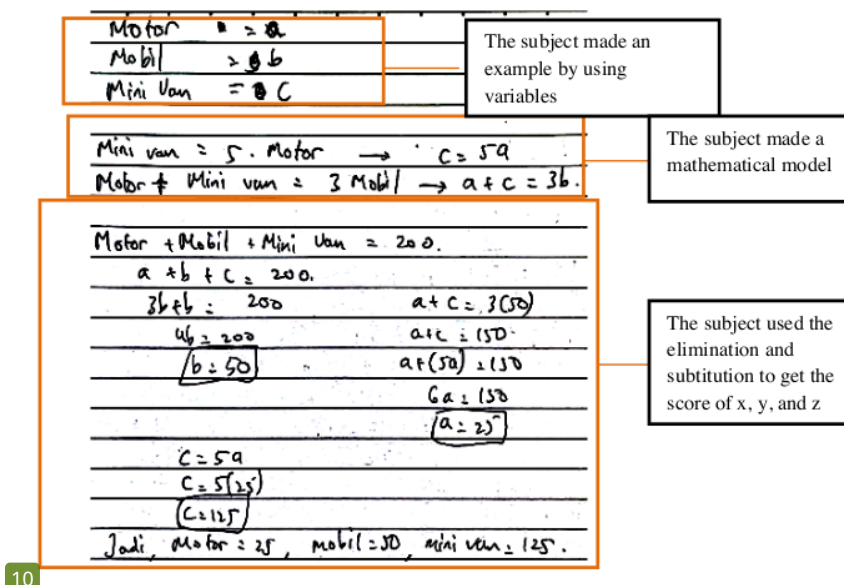 Motor = a
Mobil = b
Mini Van = C
The subject made an
example by using
variables
Mini van = 5. Motor → C = 5a
Motor + Mini van = 3 Mobil → a + c = 3b.
The subject made a
mathematical model
Motor + Mobil + Mini Van = 200.
a + b + c = 200.
3b + b = 200
4b = 200
b = 50
a + c = 3(50)
a + c = 150
a + (5a) = 150
6a = 150
a = 25
C = 5a
C = 5(25)
C = 125
Jadi, Motor = 25, mobil = 50, mini van = 125.
The subject used the
elimination and
subtitution to get the
score of x, y, and z
10